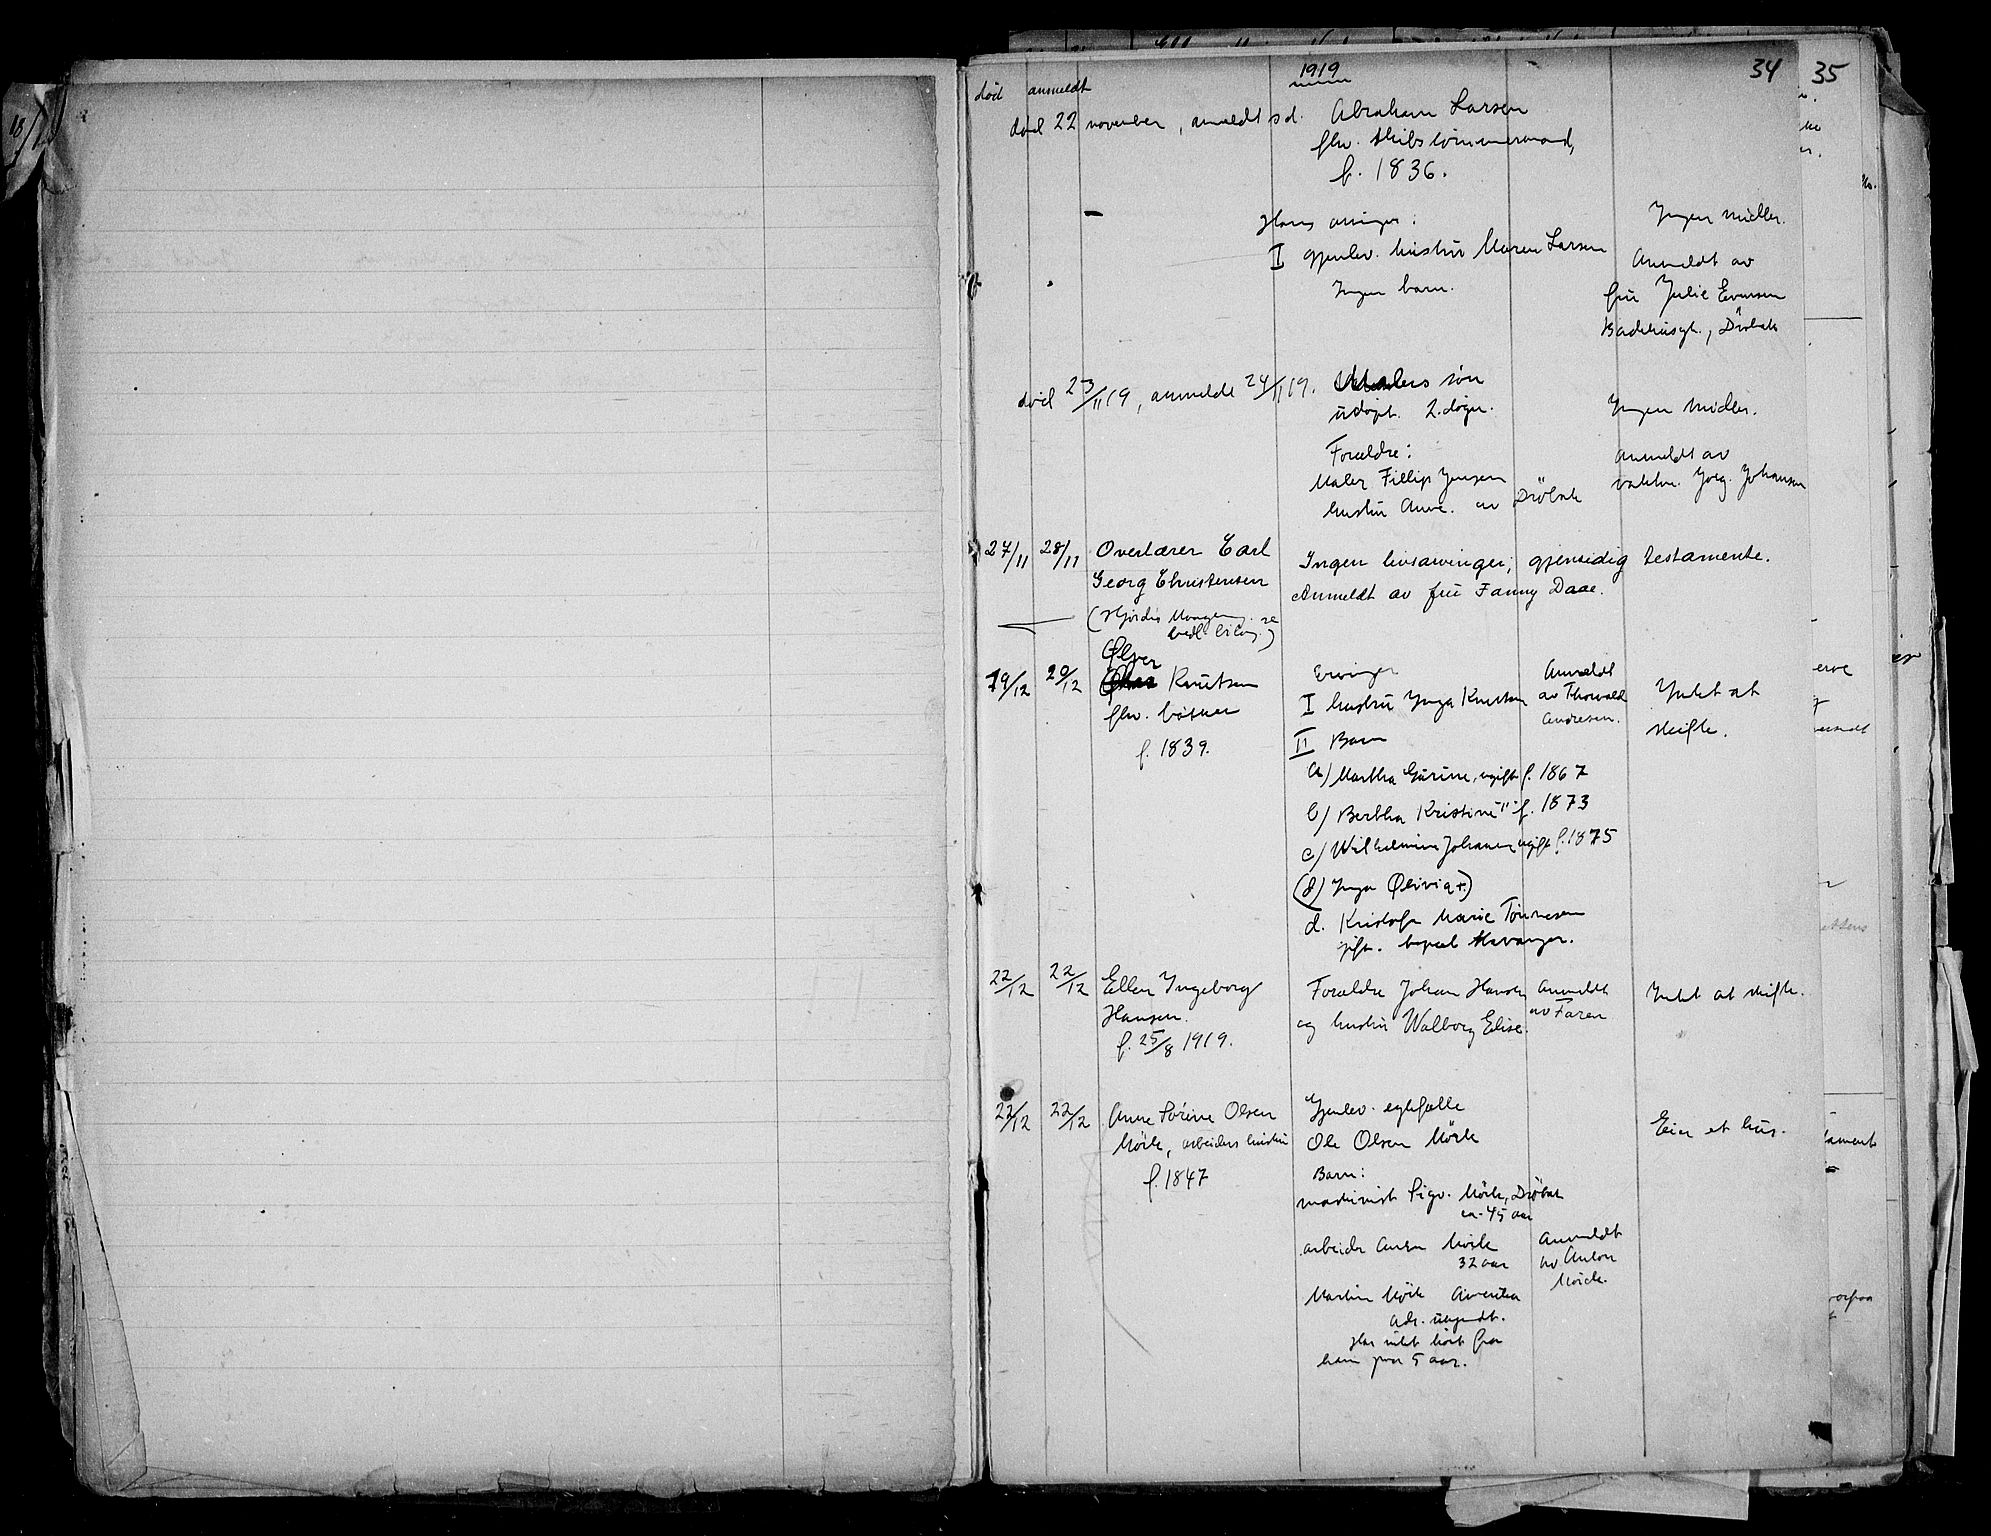 1919
34
35
død anmeldt
død 22 november, anmeldt s d. Abraham Larsen
fhv. skibstømmermand,
f. 1836.
Hans arvinger:
Ingen midler.
I gjenlev. hustru Maren Larsen
Ingen barn.
Anmeldt av
fru Julie Evensen
Badehusgt., Drøbak
død 23/11 19, anmeldt 24/11 19. Malers søn
udøpt. 2. døgn.
Ingen midler.
Forældre:
Maler Fillip Jensen
hustru Anne. av Drøbak
Anmeldt av
vaktm. Jørg. Johansen
27/11 28/11 Overlærer Carl
Georg Christensen
(Hjørdis
Ingen livsarvinger; gjensidig testamente.
Anmeldt av fru Fanny Daae.
19/12 20/12 Ølver
Knutsen
fhv. bøtker
f. 1839.
Arvinger
I hustru Inga Knutsen
II Barn
a) Martha Gurine, ugift f. 1867
b) Bertha Kristine " f. 1873
c) Wilhelmine Johanne ugift f. 1875
(d) Inga Olivia +.)
d. Kristofa Marie Tønnesen
gift. bopæl Stavanger.
Anmeldt
av Thorvald
Andresen.
Intet at
skifte.
22/12 22/12 Ellen Ingeborg
Hansen.
f. 25/8 1919.
Forældre Johan Hansen
og hustru Walborg Elise.
Anmeldt
av Faren
Intet at skifte.
22/12 22/12 Anne Sørine Olsen
Mörk, arbeiders hustru
f. 1847
Gjenlev. egtefælle
Ole Olsen Mörk
Barn:
maskinist Sigv. Mörk, Drøbak
ca. 45 aar
arbeider Anton Mörk
32 aar
Martin Mörk Amerika
Adr. ukjendt.
Har intet hørt fra
ham paa 5 aar.
Anmeldt
av Anton
Mörk.
Eier et hus.